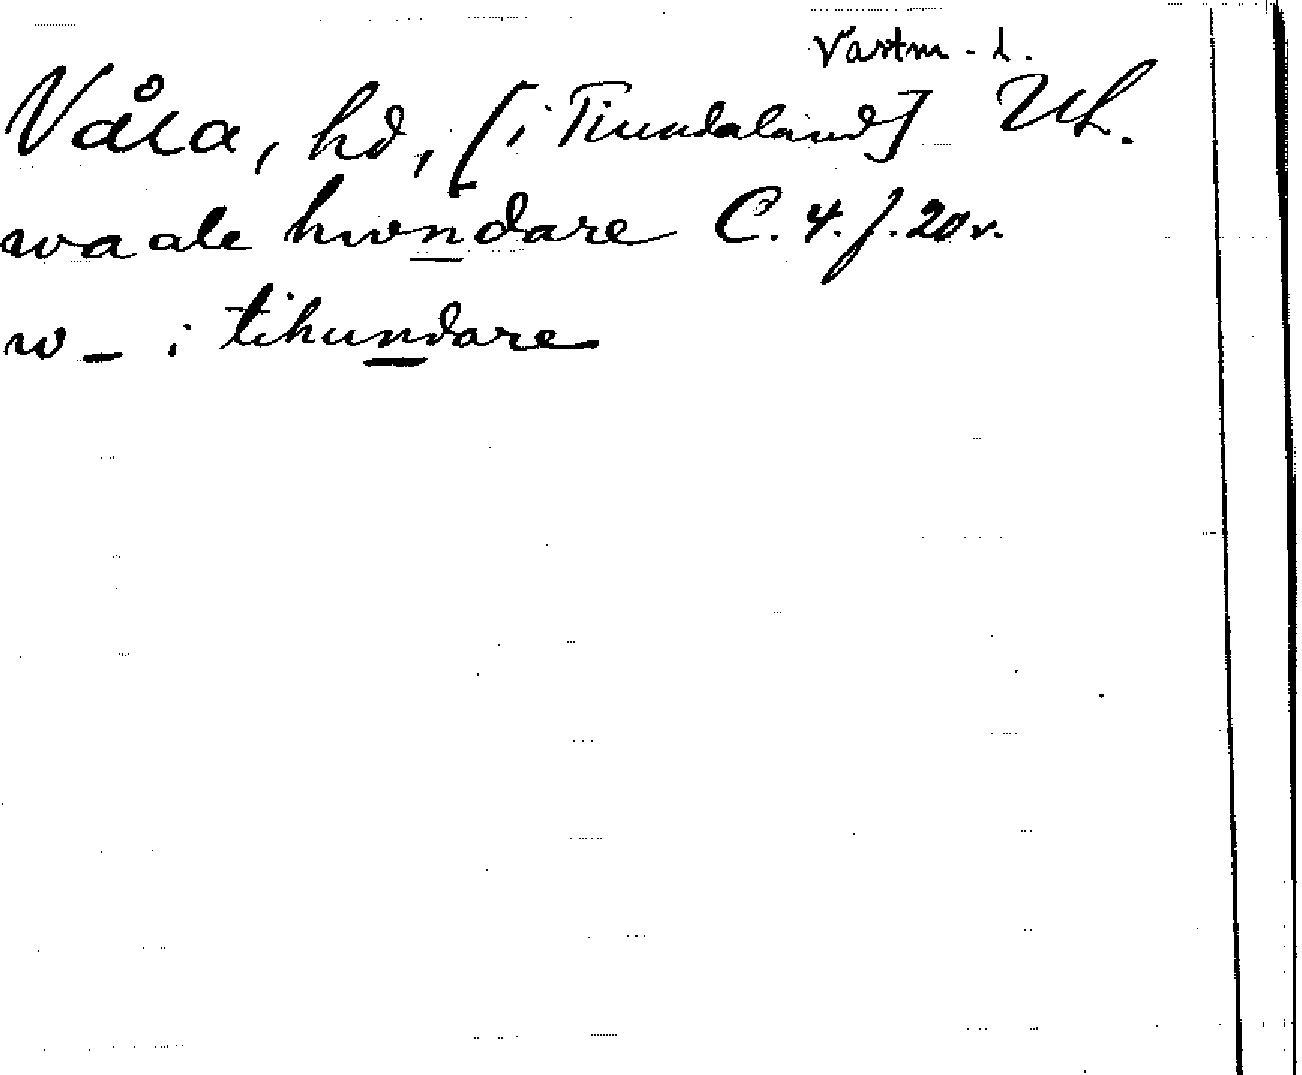 Västm - l.
Våla, hd, [i Tiundaland] Ul.
waale hwndare C. 4. f. 20v.
w - i tihundare